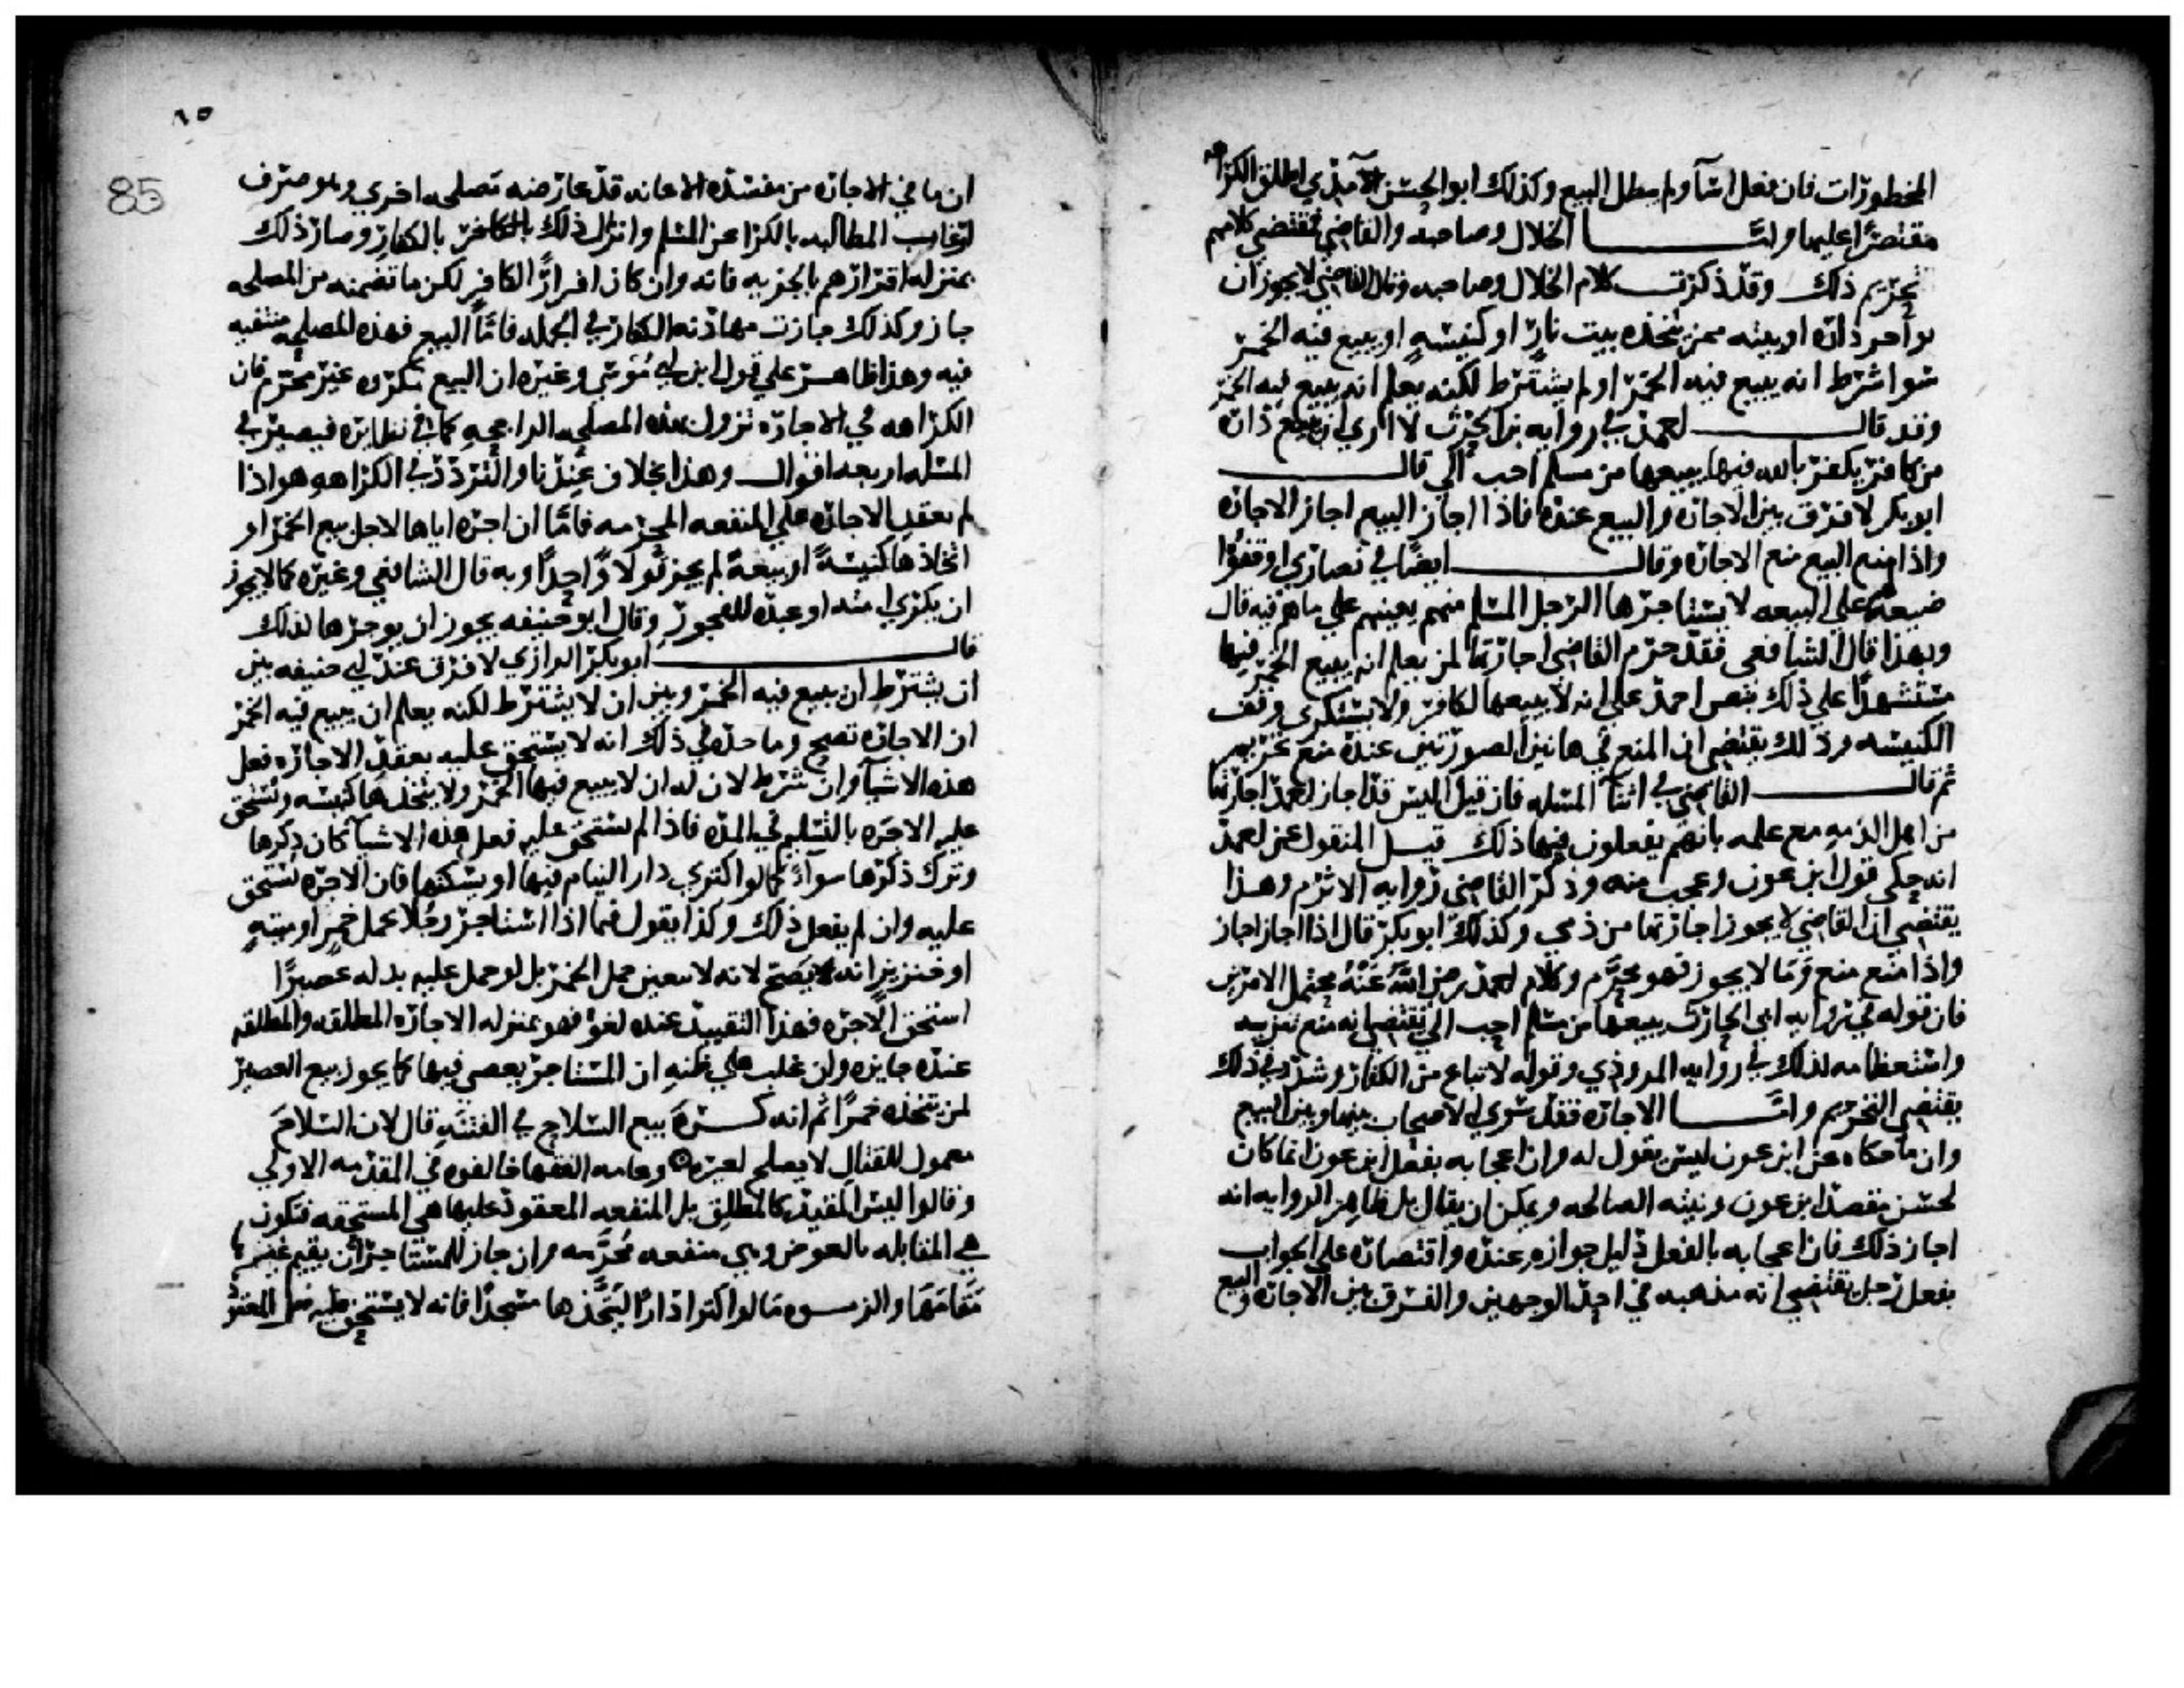 المحظورات فان فعل اسآ ولم يبطل البيع وكذلك ابو الحسن الآمدي اطلق الكراهه
مقتصرًا عليها وامَّا الخلال وصاحبه والقاضي فمقتضي كلامهم
تحريم ذلك وقد ذكرت كلام الخلال وصاحبه وقال القاضي لا يجوز ان
يواجر داره او بيته ممن يتخذه بيت نار او كنيسهٍ او يبيع فيه الخمر
سوا شرط انه يبيع فيه الخمر او لم يشترط لكنه يعلم انه يبيع فيه الخمر
وقد قال احمد في روايه ابي الحرث لا اري ان يبيع داره
من كافر يكفر بالله فيها يبيعها من مسلم احب الي قال
ابو بكر لا فرق بين الاجاره والبيع عنده فاذا اجاز البيع اجاز الاجاره
واذا منع البيع منع الاجاره وقال ايضًا في نصاري اوقفوا
ضيعهً علي البيعه لا يستاجرها الرجل المسلم منهم يعينهم علي ما هم فيه قال
وبهذا قال الشافعي فقد حرم القاضي اجارتها لمن يعلم انه يبيع الخمر فيها
مستشهدًا علي ذلك بنص احمد علي انه لا يبيعها لكافر ولا يستكري وقف
الكنيسه وذلك يقتضي ان المنع في هاتين الصورتين عنده منع تحريم
ثم قال القاضي في اثنآ المسله فان قيل اليس قد اجاز احمد اجارتها
من اهل الذمه مع علمه بانهم يفعلون فيها ذلك قيل المنقول عن احمد
انه حكي قول ابن عون وعجب منه وذكر القاضي روايه الاثرم وهذا
يقتضي ان القاضي لا يجوز اجارتها من ذمي وكذلك ابو بكر قال اذا اجاز اجاز
واذا منع منع وَمَا لا يجوز فهو محرَّم وكلام احمد رضي اللَّه عَنْهُ محتمل الامرين
فان قوله في روايه ابي الحارث يبيعها من مسلم احب الي يقتضي انه منع تنزيه
واستعظامه لذلك في روايه المروذي وقوله لا تباع من الكفار وشدد في ذلك
يقتضي التحريم وامَّا الاجاره فقد سوي الاصحاب بينها وبين البيع
وان ما حكاه عن ابن عون ليس بقول له وان اعجابه بفعل ابن عون انما كان
لحسن مقصد ابن عون ونيته الصالحه ويمكن ان يقال بل ظاهر الروايه انه
اجاز ذلك فان اعجابه بالفعل دليل جوازه عنده واقتصاره علي الجواب
بفعل رجل يقتضي انه مذهبه في احد الوجهين والفرق بين الاجاره والبيع
٨٥
85
ان ما في الاجاره من مفسده الاعانه قد عارضه مصلحه اخري وهو صرف
ارعاب المطالبه بالكرا عن المسلم وانزال ذلك بالكافر بالكفار وصار ذلك
بمنزله اقرارهم بالجزيه فانه وان كان اقرارًا لكافر لكن ما تضمنه من المصلحه
جاز وكذلك جازت مهادنه الكفار في الجمله فامَّا البيع فهذه المصلحه منتفيه
فيه وهذا ظاهر علي قول ابن ابي موسي وغيره ان البيع مكروه غير محرم فان
الكراهه في الاجاره تزول بهذه المصلحه الراجحه كما في نظايره فيصير في
المسله اربعه اقوال وهذا الخلاف عندنا والتردد في الكراهه هو اذا
لم يعقد الاجاره علي المنفعه المحرمه فامَّا ان اجره اياها لاجل بيع الخمر او
اتخاذها كنيسهً او بيعهً لم يجز قولًا واحدًا وبه قال الشافعي وغيره كما لا يجوز
ان يكري امته او عبده للفجور وقال ابو حنيفه يجوز ان يوجرها لذلك
قال ابو بكر الرازي لا فرق عند ابي حنيفه بين
ان يشترط ان يبيع فيه الخمر وبين ان لا يشترط لكنه يعلم ان يبيع فيه الخمر
ان الاجاره تصح وماخذه في ذلك انه لا يستحق عليه بعقد الاجاره فعل
هذه الاشيآ وان شرط لان له ان لا يبيع فيها الخمر ولا يتخذها كنيسه ويستحق
عليه الاجره بالتسليم في المده فاذا لم يستحق عليه فعل هذه الاشيآ كان ذكرها
وترك ذكرها سوآءً كما لو اكتري دار الينام فيها او يسكنها فان الاجره تستحق
عليه وان لم يفعل ذلك وكذا يقول فيما اذا استاجر رجلًا يحمل خمرٍ او ميتهٍ
او خنزيرٍ انه لا يصح لانه لا يتعين حمل الخمر بل لو حمل عليه بدله عصيرًا
استحق الاجره فهذا التقييد عنده لغو فهو بمنزله الاجاره المطلقه والمطلقه
عنده جايزه وان غلب علي ظنه ان المستاجر يعصي فيها كما يجوز بيع العصير
لمن يتخذه خمرًا ثم انه كره بيع السلاح في الفتنه قال لان السلاح
معمول للقتال لا يصلح لغيره وعامه الفقها خالفوه في المقدمه الاولي
وقالوا ليس المقيد كالمطلق بل المنفعه المعقود عليها هي المستحقه فتكون
هي المقابله بالعوض وهي منفعه مُحرَّمه وان جاز للمستاجر ان يقيم غيرها
مَقامَهَا والزموه مَا لو اكترا دارًا ليتخذها مسجدًا فانه لا يستحق عليه فعل المعقود